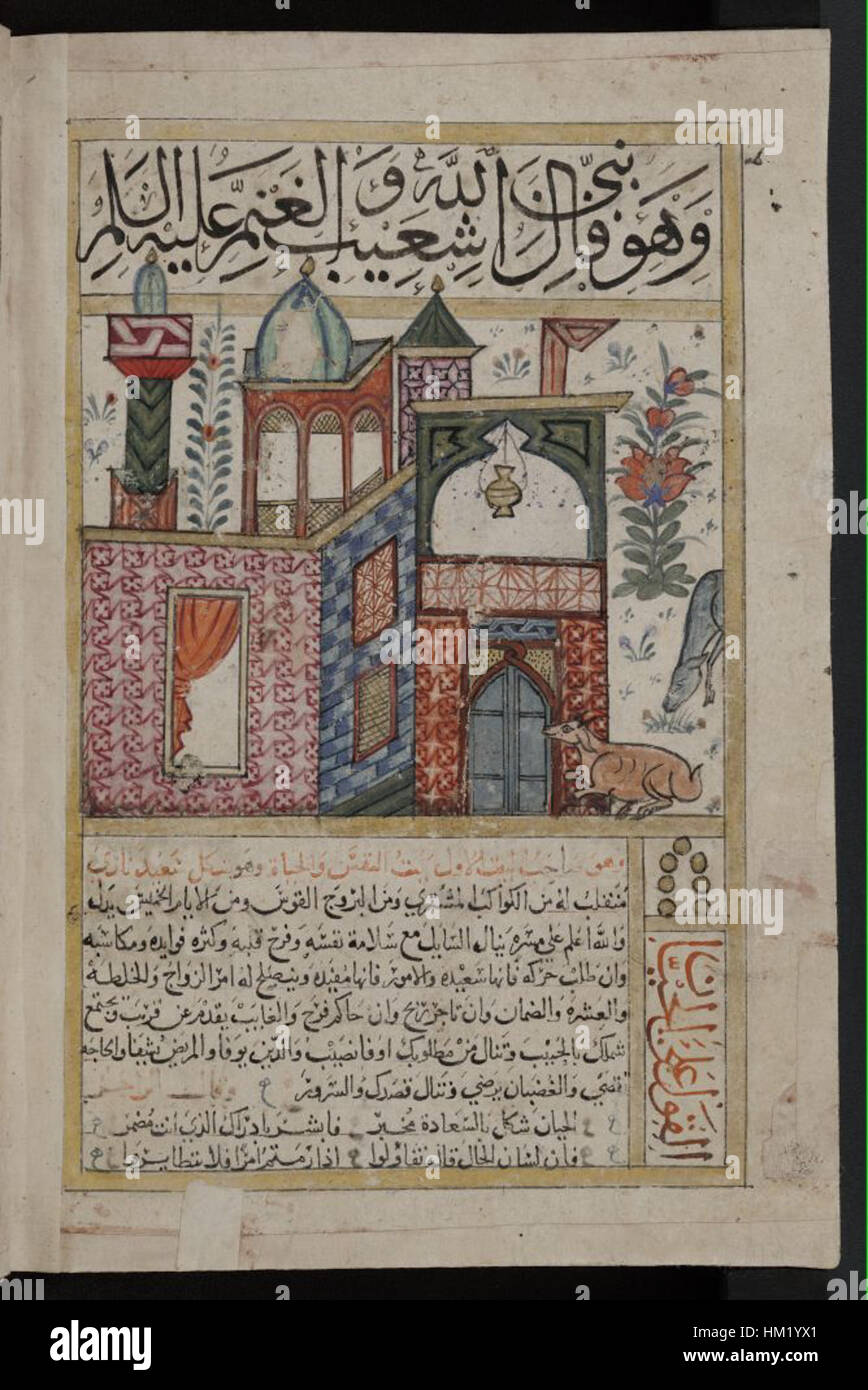 وَهَوَ فال نبيّ الله شِعَيب وَ الغَنَم عَليه السلم
وهو صاحب البيت الاول بيت النفس والحياة وهو شكل سعيد ناري
منقلب له من الكواكب المشتري ومن البروج القوس ومن الايام الخميس يدل
والله اعلم على مسره ينال السايل مع سلامة نفسه وفرح قلبه وكثره فوايده ومكاسبه
وان طلب حركه فانها سعيده والامور فانها مفيده ويصلح له امر الزواج والخلطة
والعشره والضمان وان تاجر ربح وان حاكم فرح والغايب يقدم عن قريب ويجتمع
شملك بالحبيب وتنال من مطلوبك اوفا نصيب والدين يوفا والمريض يشفا والحاجه
تقضي والغضبان يرضي وتنال قصدك والسرور
الحيان شكل بالسعادة مخبر فابشر بادراك الذي انت مضمر
فان لسان الحال قال تفاولوا اذا رمتم امرا فلا تتطايروا
القول على الحيان
alamy
Image ID: HM1YX1
www.alamy.com